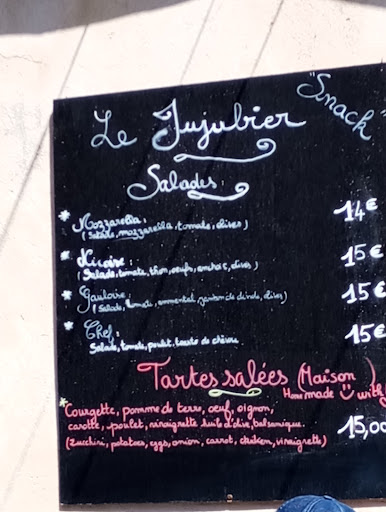 Le Jujubier
"Snack"
Salades
* Mozzarella, 14€
(Salade, mozzarella, tomate, olives)
* Nicoise: 15€
(Salade, tomate, thon, oeufs, anchoit, olives)
* Gauloise, 15€
(Salade, tomate, emmental, jambon de dinde, olives)
* Chef: 15€
Salade, tomate, poulet, toasts de chèvre
Tartes salées (Maison)
Home made with
* Courgette, pomme de terre, oeuf, oignon,
carotte, poulet, vinaigrette huile d'olive, balsamique. 15,00
(Zucchini, potatoes, eggs, onion, carrot, chicken, vinaigrette)